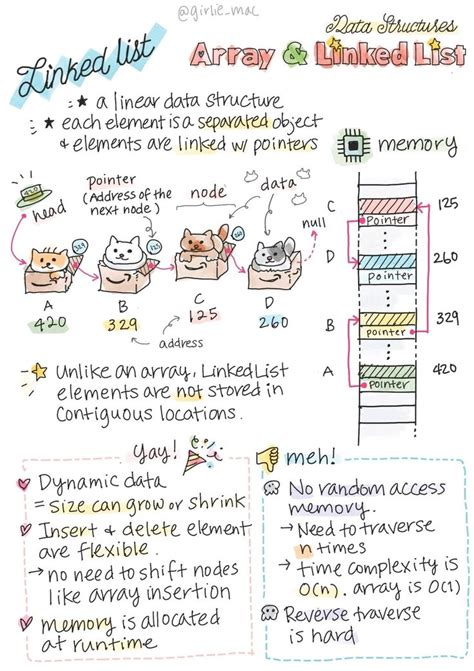 @girlie_mac
Data Structures
Array & Linked List
Linked list
★ a linear data structure
★ each element is a separated object
& elements are linked w/ pointers
memory
420
head
pointer
(Address of the
next node)
node
data
null
329
125
260
A
B
C
D
420
329
125
260
address
C
125
pointer
D
260
pointer
B
329
pointer
A
420
pointer
Unlike an array, Linked List
elements are not stored in
contiguous locations.
Yay!
Dynamic data
= size can grow or shrink
Insert & delete element
are flexible.
→ no need to shift nodes
like array insertion
memory is allocated
at runtime
meh!
No random access
memory.
→ Need to traverse
n times
→ time complexity is
O(n). array is O(1)
Reverse traverse
is hard